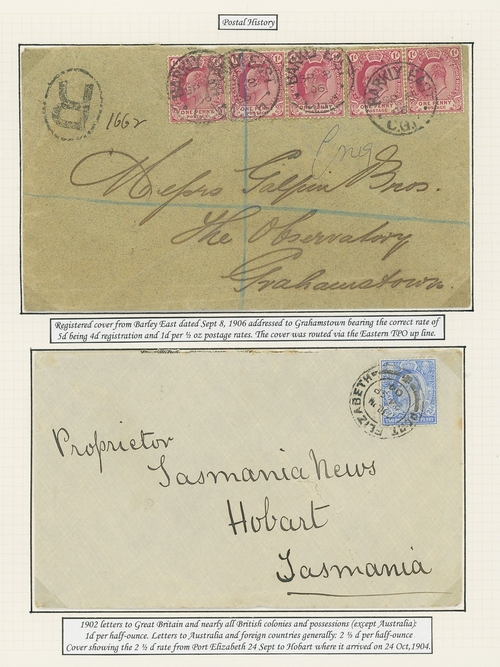 Postal History
R
1662
BARKLY EAST
BARKLY EAST
BARKLY EAST
C.G.H.
ONE PENNY
ONE PENNY
ONE PENNY
ONE PENNY
ONE PENNY
Messrs Galpin Bros.
The Observatory
Grahamstown.
Registered cover from Barley East dated Sept 8, 1906 addressed to Grahamstown bearing the correct rate of
5d being 4d registration and 1d per ½ oz postage rates. The cover was routed via the Eastern TPO up line.
PORT ELIZABETH
Proprietor
Tasmania News
Hobart
Tasmania
1902 letters to Great Britain and nearly all British colonies and possessions (except Australia):
1d per half-ounce. Letters to Australia and foreign countries generally: 2 ½ d per half-ounce
Cover showing the 2 ½ d rate from Port Elizabeth 24 Sept to Hobart where it arrived on 24 Oct,1904.